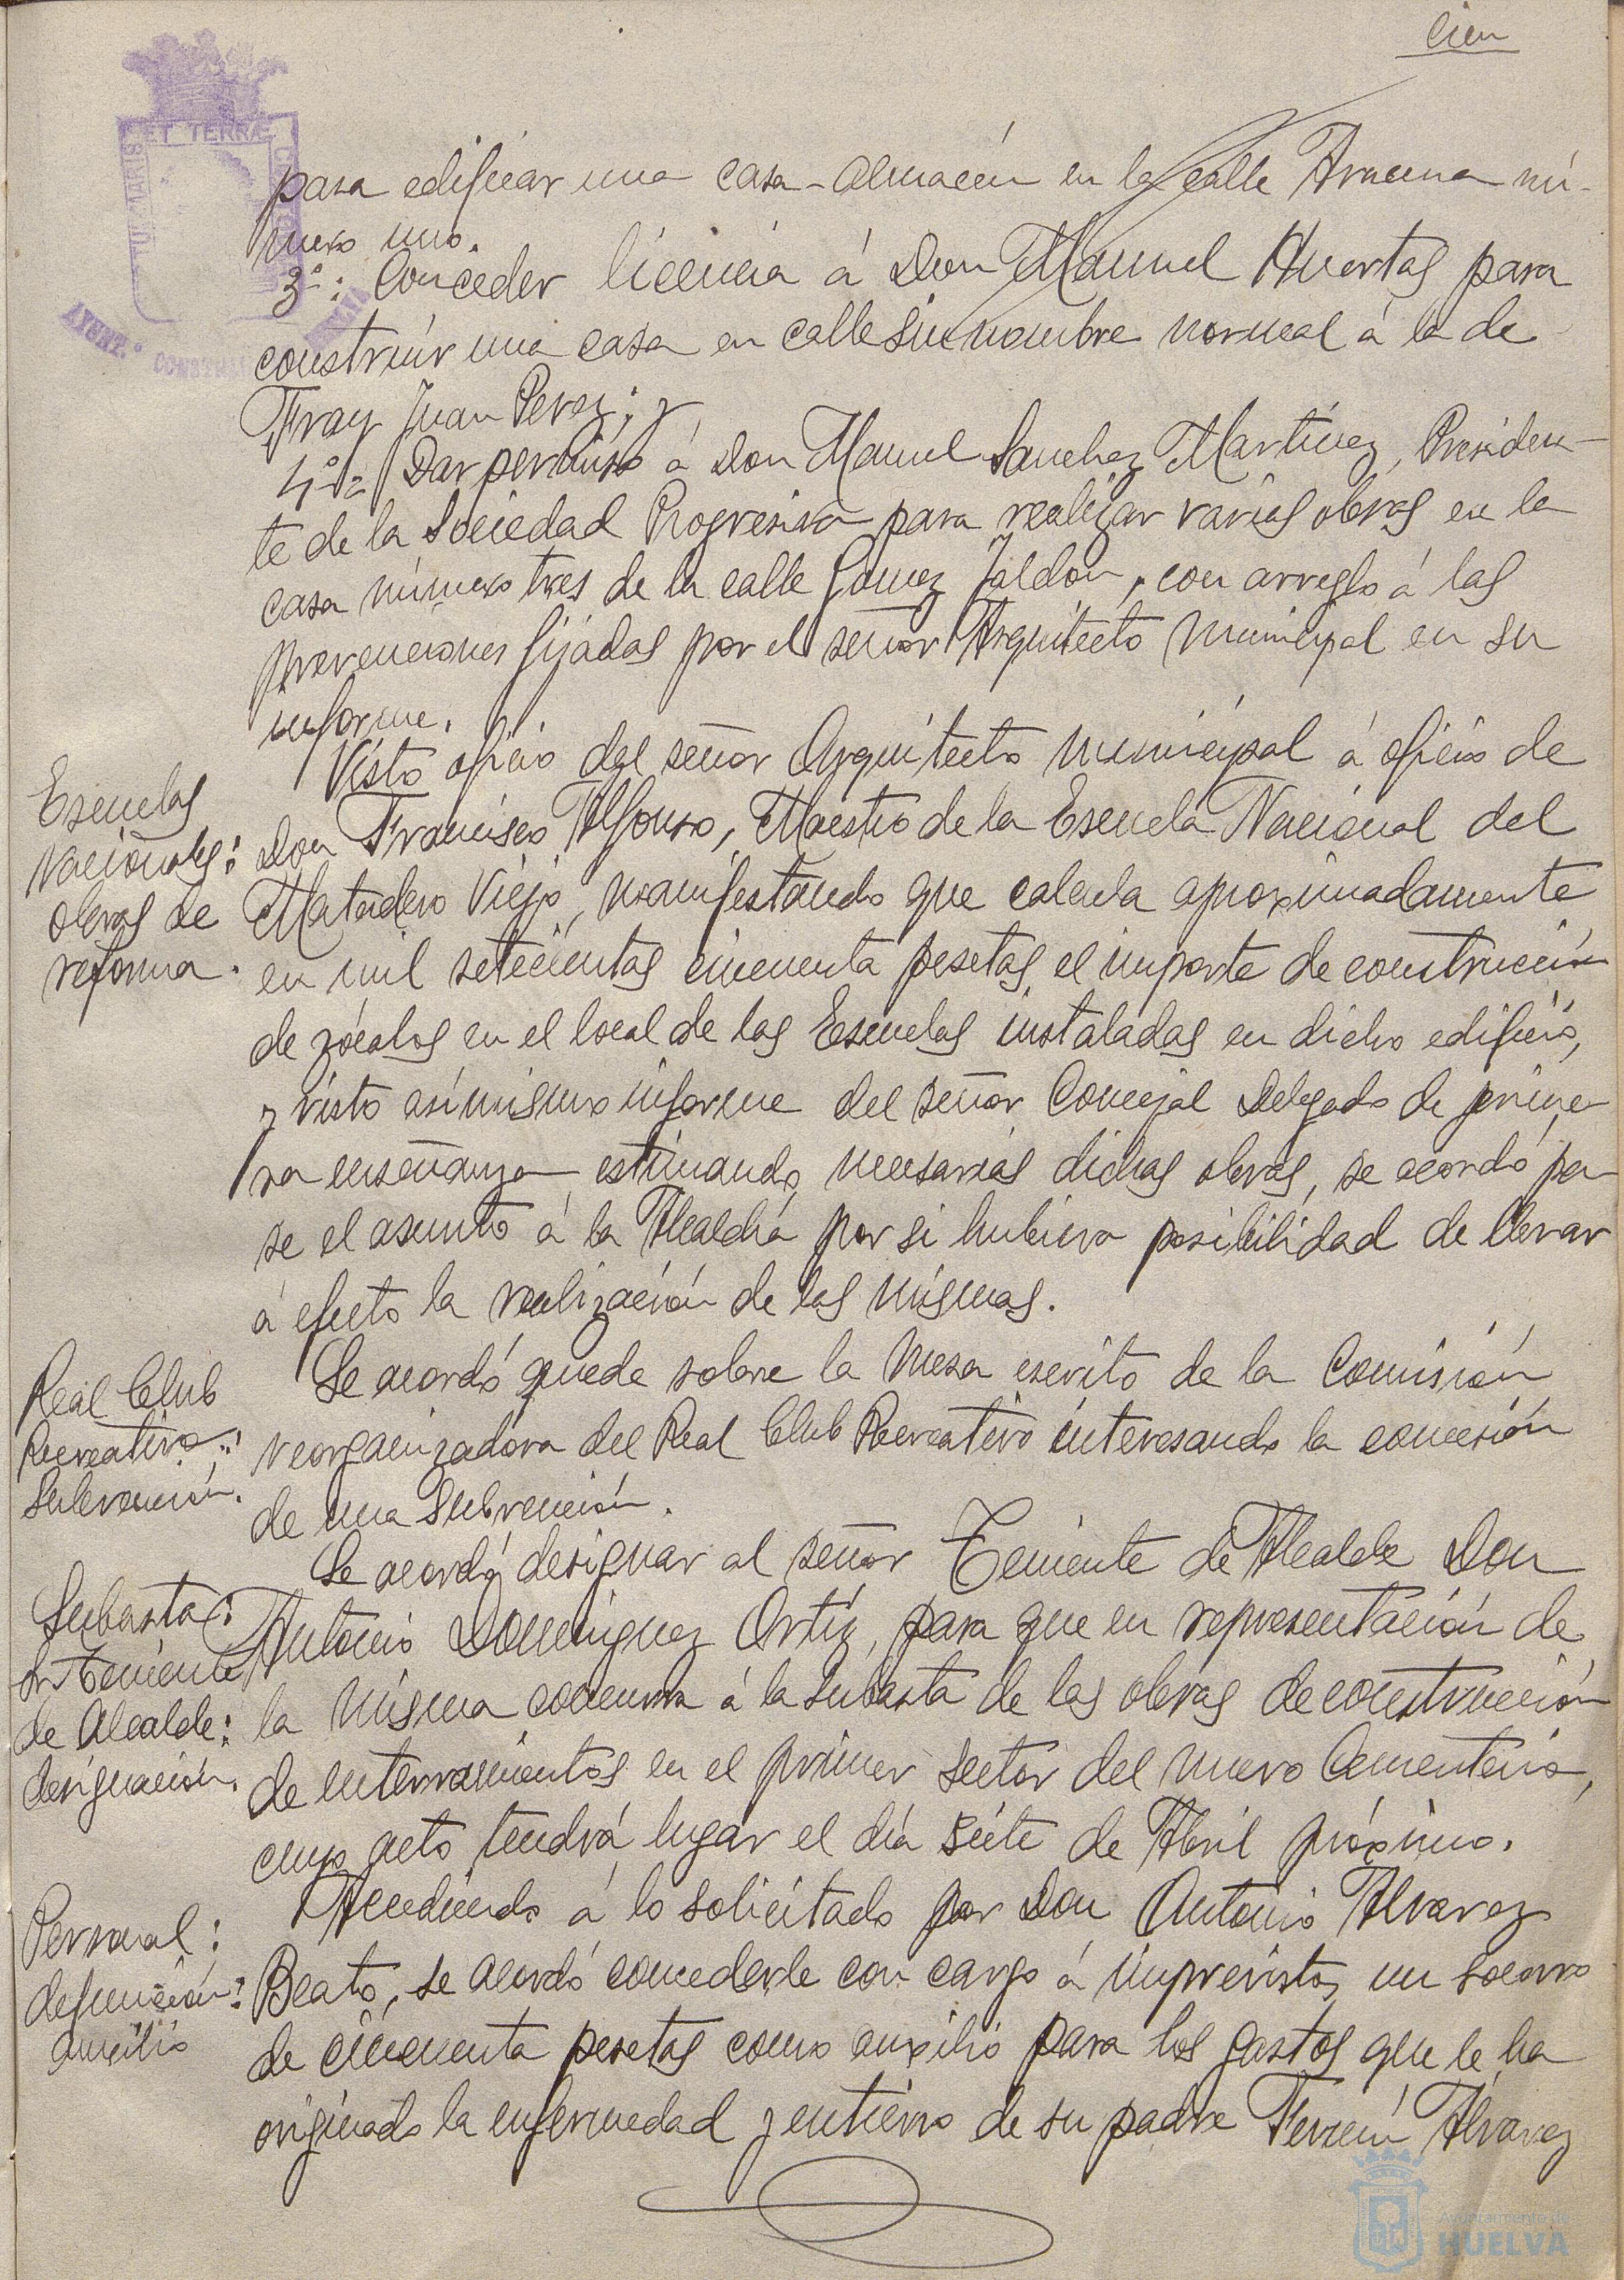 cien
para edificar una casa-almacén en la calle Aracena nú-
mero uno.
3º: Conceder licencia á Don Manuel Huertas para
construír una casa en calle sin nombre normal á la de
Fray Juan Perez; y
4º= Dar permiso á Don Manuel Sanchez Martínez, Presiden-
te de la Sociedad Progresiva para realizar varias obras en la
casa número tres de la calle Gomez Jaldon, con arreglo á las
prevenciones fijadas por el señor Arquitecto municipal en su
informe.
Escuelas
Nacionales:
obras de
reforma.
Visto oficio del señor Arquitecto municipal á oficio de
Don Francisco Alfonso, Maestro de la Escuela Nacional del
Matadero Viejo, manifestando que calcula aproximadamente
en mil setecientas cincuenta pesetas el importe de construcción
de zócalos en el local de las Escuelas instaladas en dicho edificio,
y visto asímismo informe del señor Concejal Delegado de prime-
ra enseñanza estimando necesarias dichas obras, se acordó pa-
se el asunto á la Alcaldía por si hubiera posibilidad de llevar
á efecto la realización de las mísmas.
Real Club
Recreativo:
Subvención.
Se acordó quede sobre la Mesa escrito de la Comisión
reorganizadora del Real Club Recreativo interesando la concesión
de una subvención.
Subasta:
Sr. Teniente
de Alcalde:
designación.
Se acordó designar al señor Teniente de Alcalde Don
Antonio Dominguez Ortíz, para que en representación de
la mísma concurra á la subasta de las obras de construcción
de enterramientos en el primer sector del nuevo Cementerio,
cuyo acto tendrá lugar el día siete de Abril próximo.
Personal:
defunción:
auxilio
Accediendo á lo solicitado por Don Antonio Alvarez
Beato, se acordó concederle con cargo á imprevistos, un socorro
de cincuenta pesetas como auxilio para los gastos que le ha
originado la enfermedad y entierro de su padre Fermín Alvarez
ET TERRÆ
AYUNT.º CONSTI
Ayuntamiento de
HUELVA